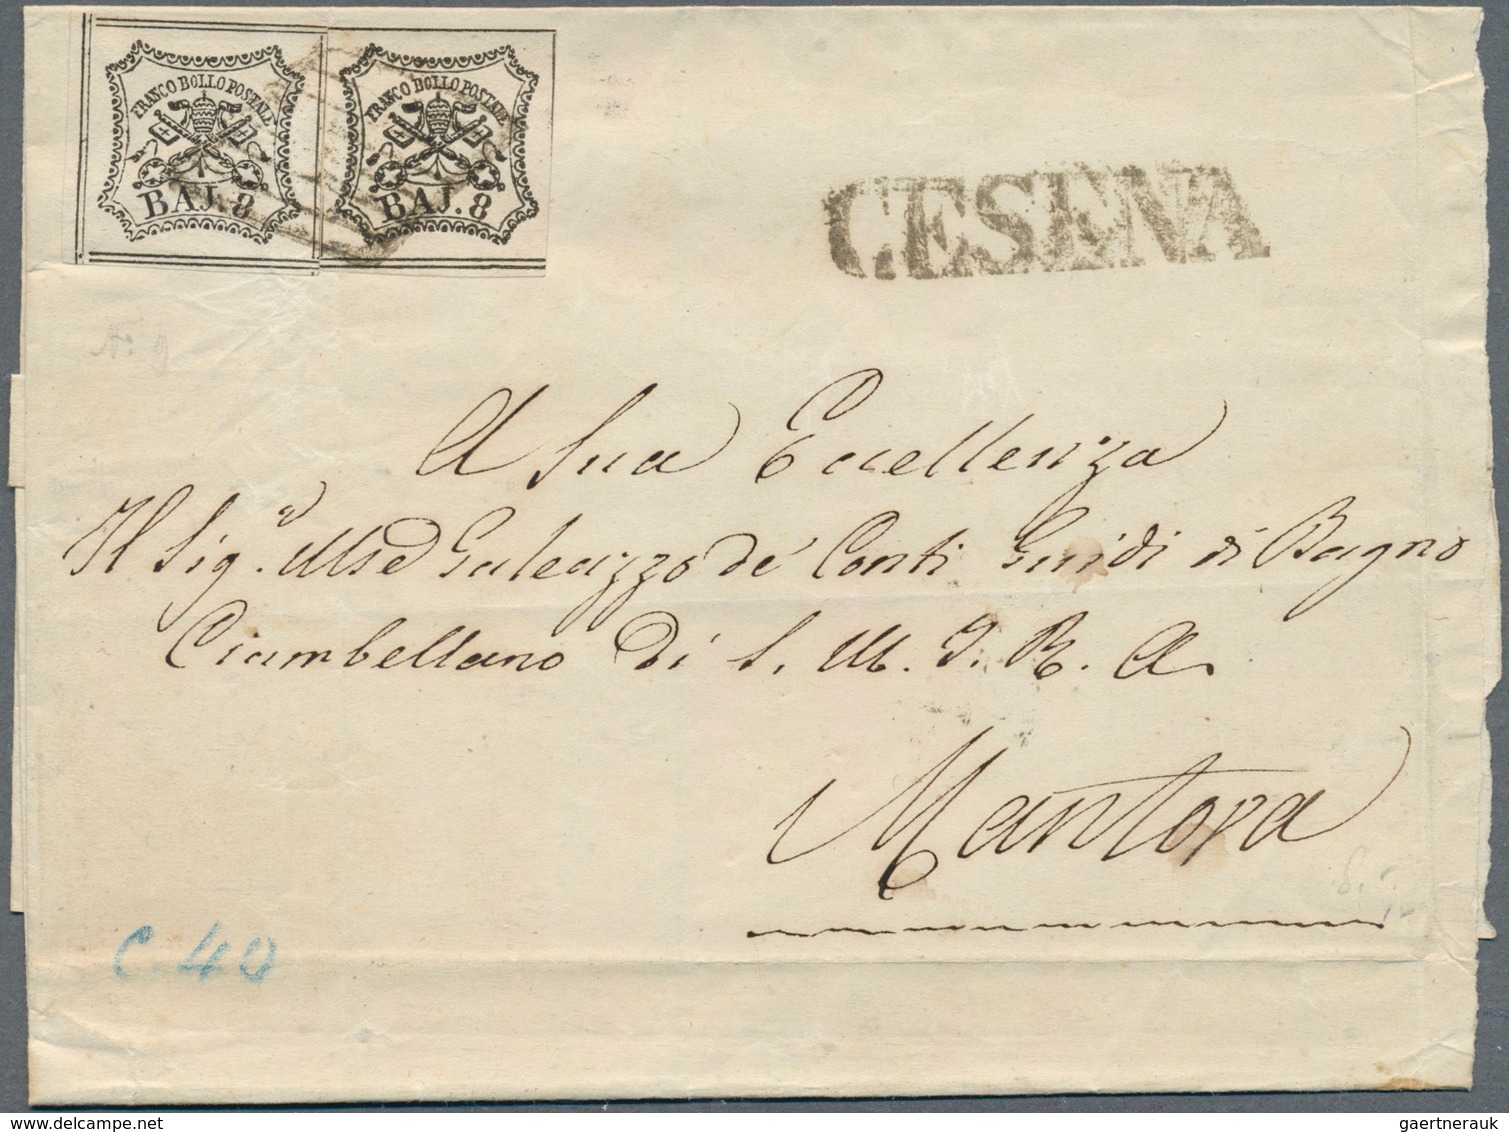 FRANCO BOLLO POSTALE
BAJ. 8
FRANCO BOLLO POSTALE
BAJ. 8
CESENA
A Sua Eccellenza
Il Sig.r Mse Galeazzo de' Conti Guidi di Bagno
Ciambellano di S. M. I. R. A.
Mantova
C. 40
gaertnerauk